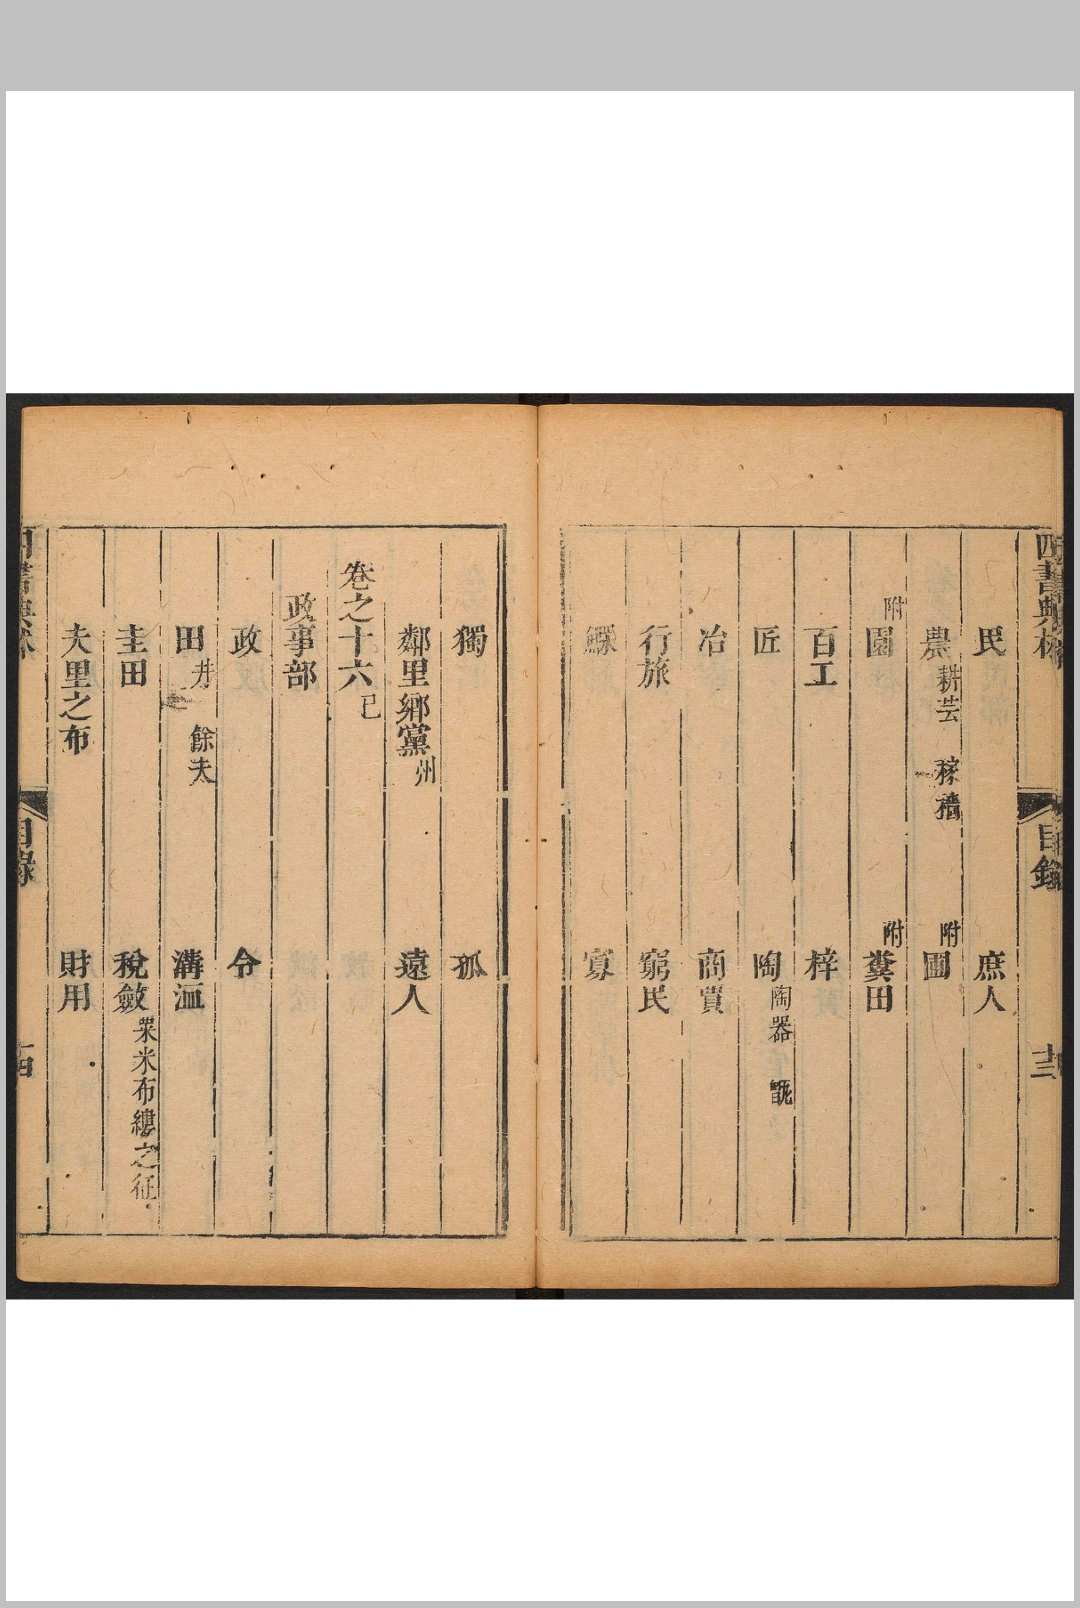 四書典林 目錄 十三
民 庶人
農 耕芸 稼穡 附圃
附園 附糞田
百工 梓
匠 陶 陶器 甄
冶 商賈
行旅 窮民
鰥 寡
獨 孤
鄰里鄉黨 州 遠人
卷之十六 巳
政事部
政 令
田 井 餘夫 溝洫
圭田 稅斂 粟米布縷之征
夫里之布 財用
四書典林 目錄